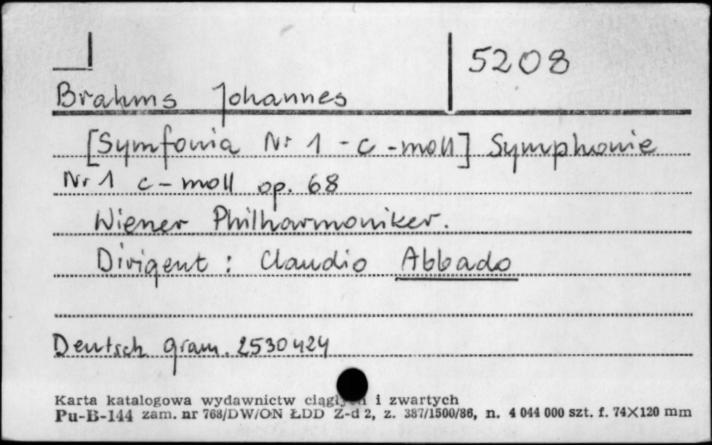 5208
Brahms Johannes
[Symfonia Nr 1 - c - moll] Symphonie
Nr 1 c - moll op. 68
Wiener Philharmoniker.
Dirigent : Claudio Abbado
Deutsch gram. 2530424
Karta katalogowa wydawnictw i zwartych
Pu-B-144 zam. nr 768/DW/ON ŁDD Z-d 2, z. 387/1500/86, n. 4 044 000 szt. f. 74×120 mm